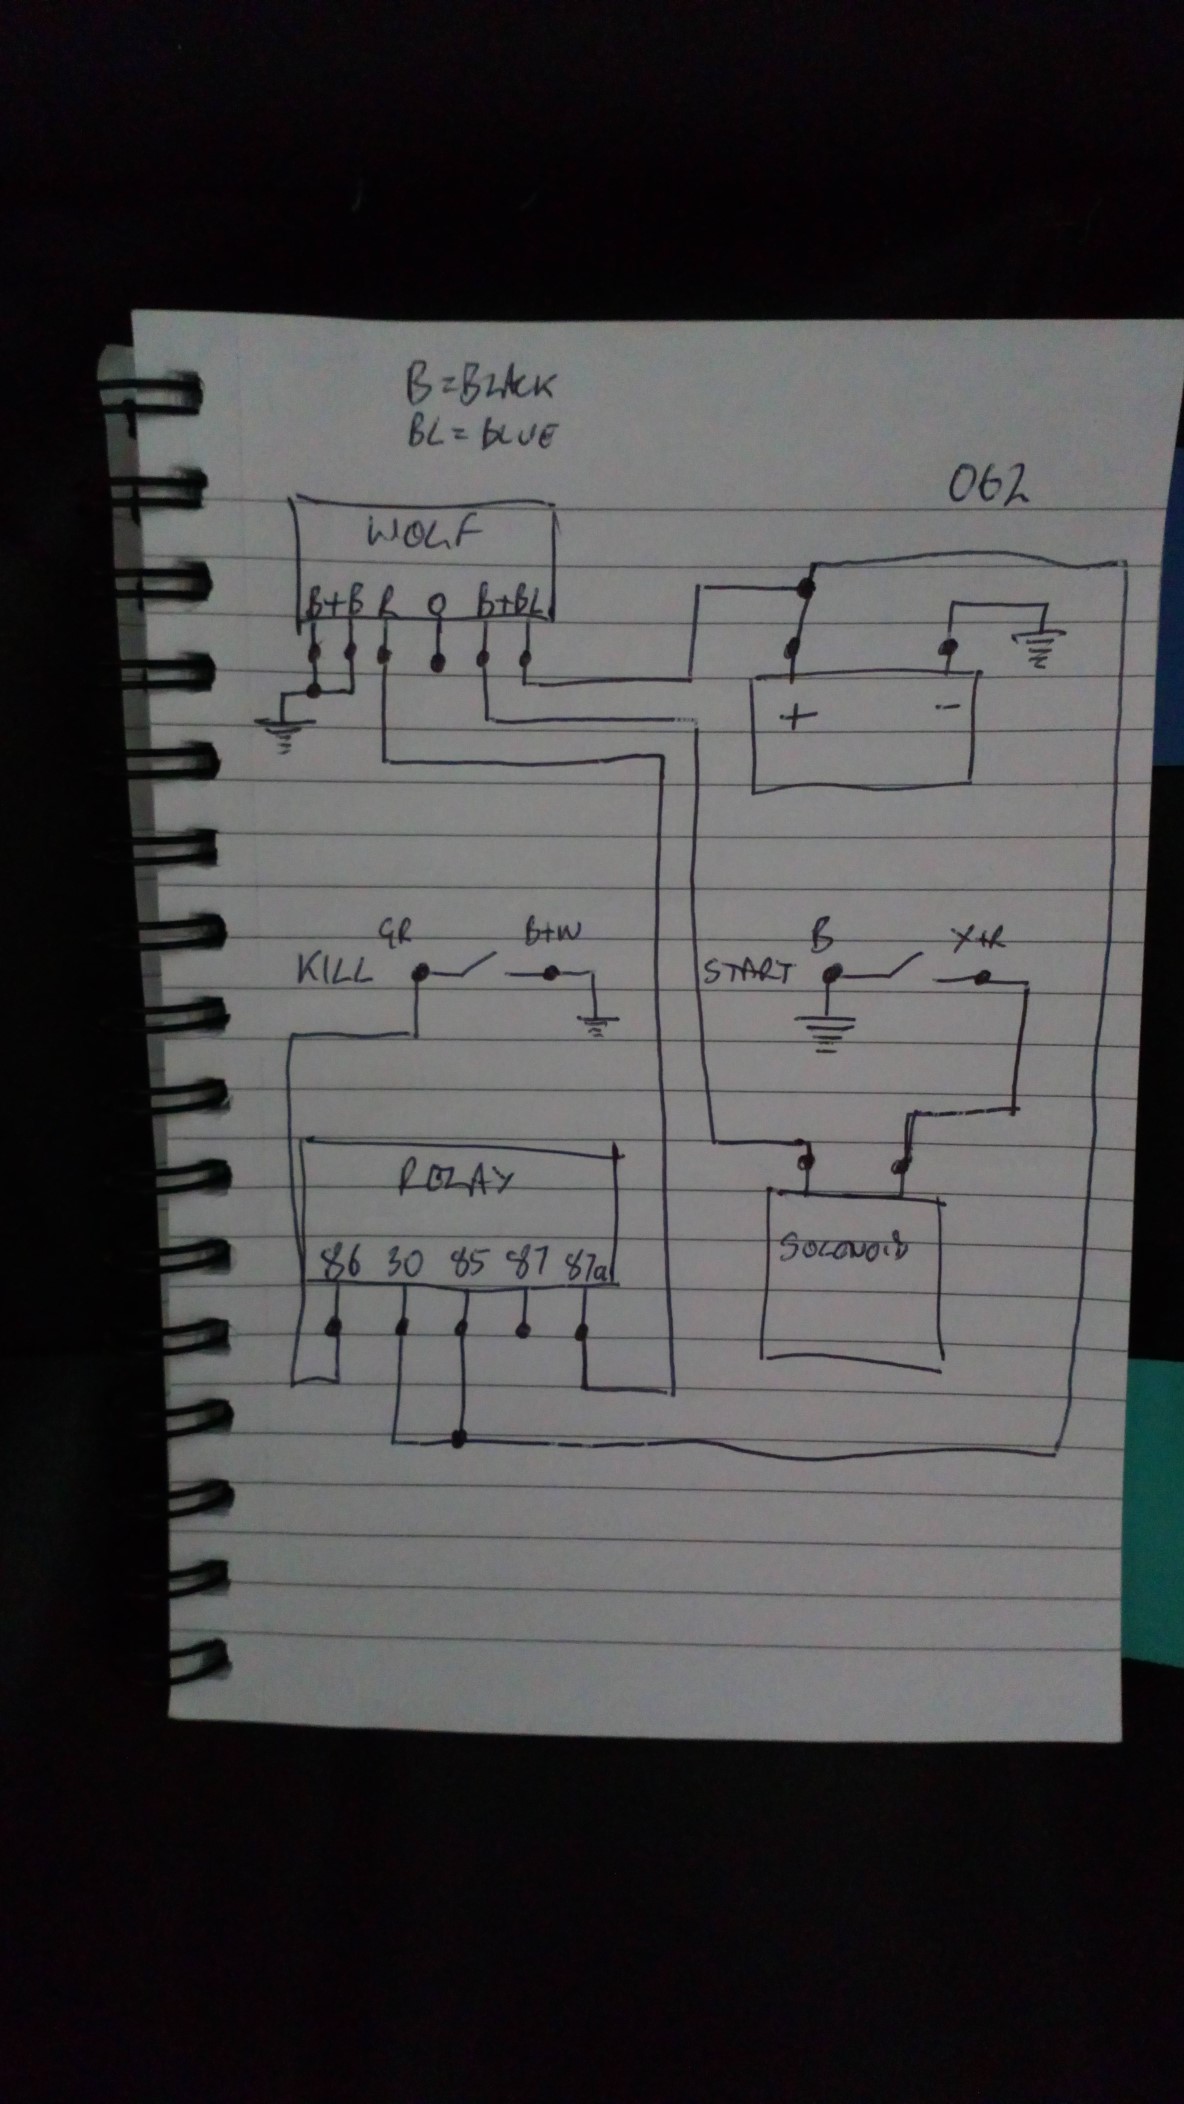 B=BLACK
BL=BLUE
062
WOLF
B+B R O B+BL
+ -
GR B+W
KILL
B Y+R
START
RELAY
86 30 85 87 87a
SOLONOID